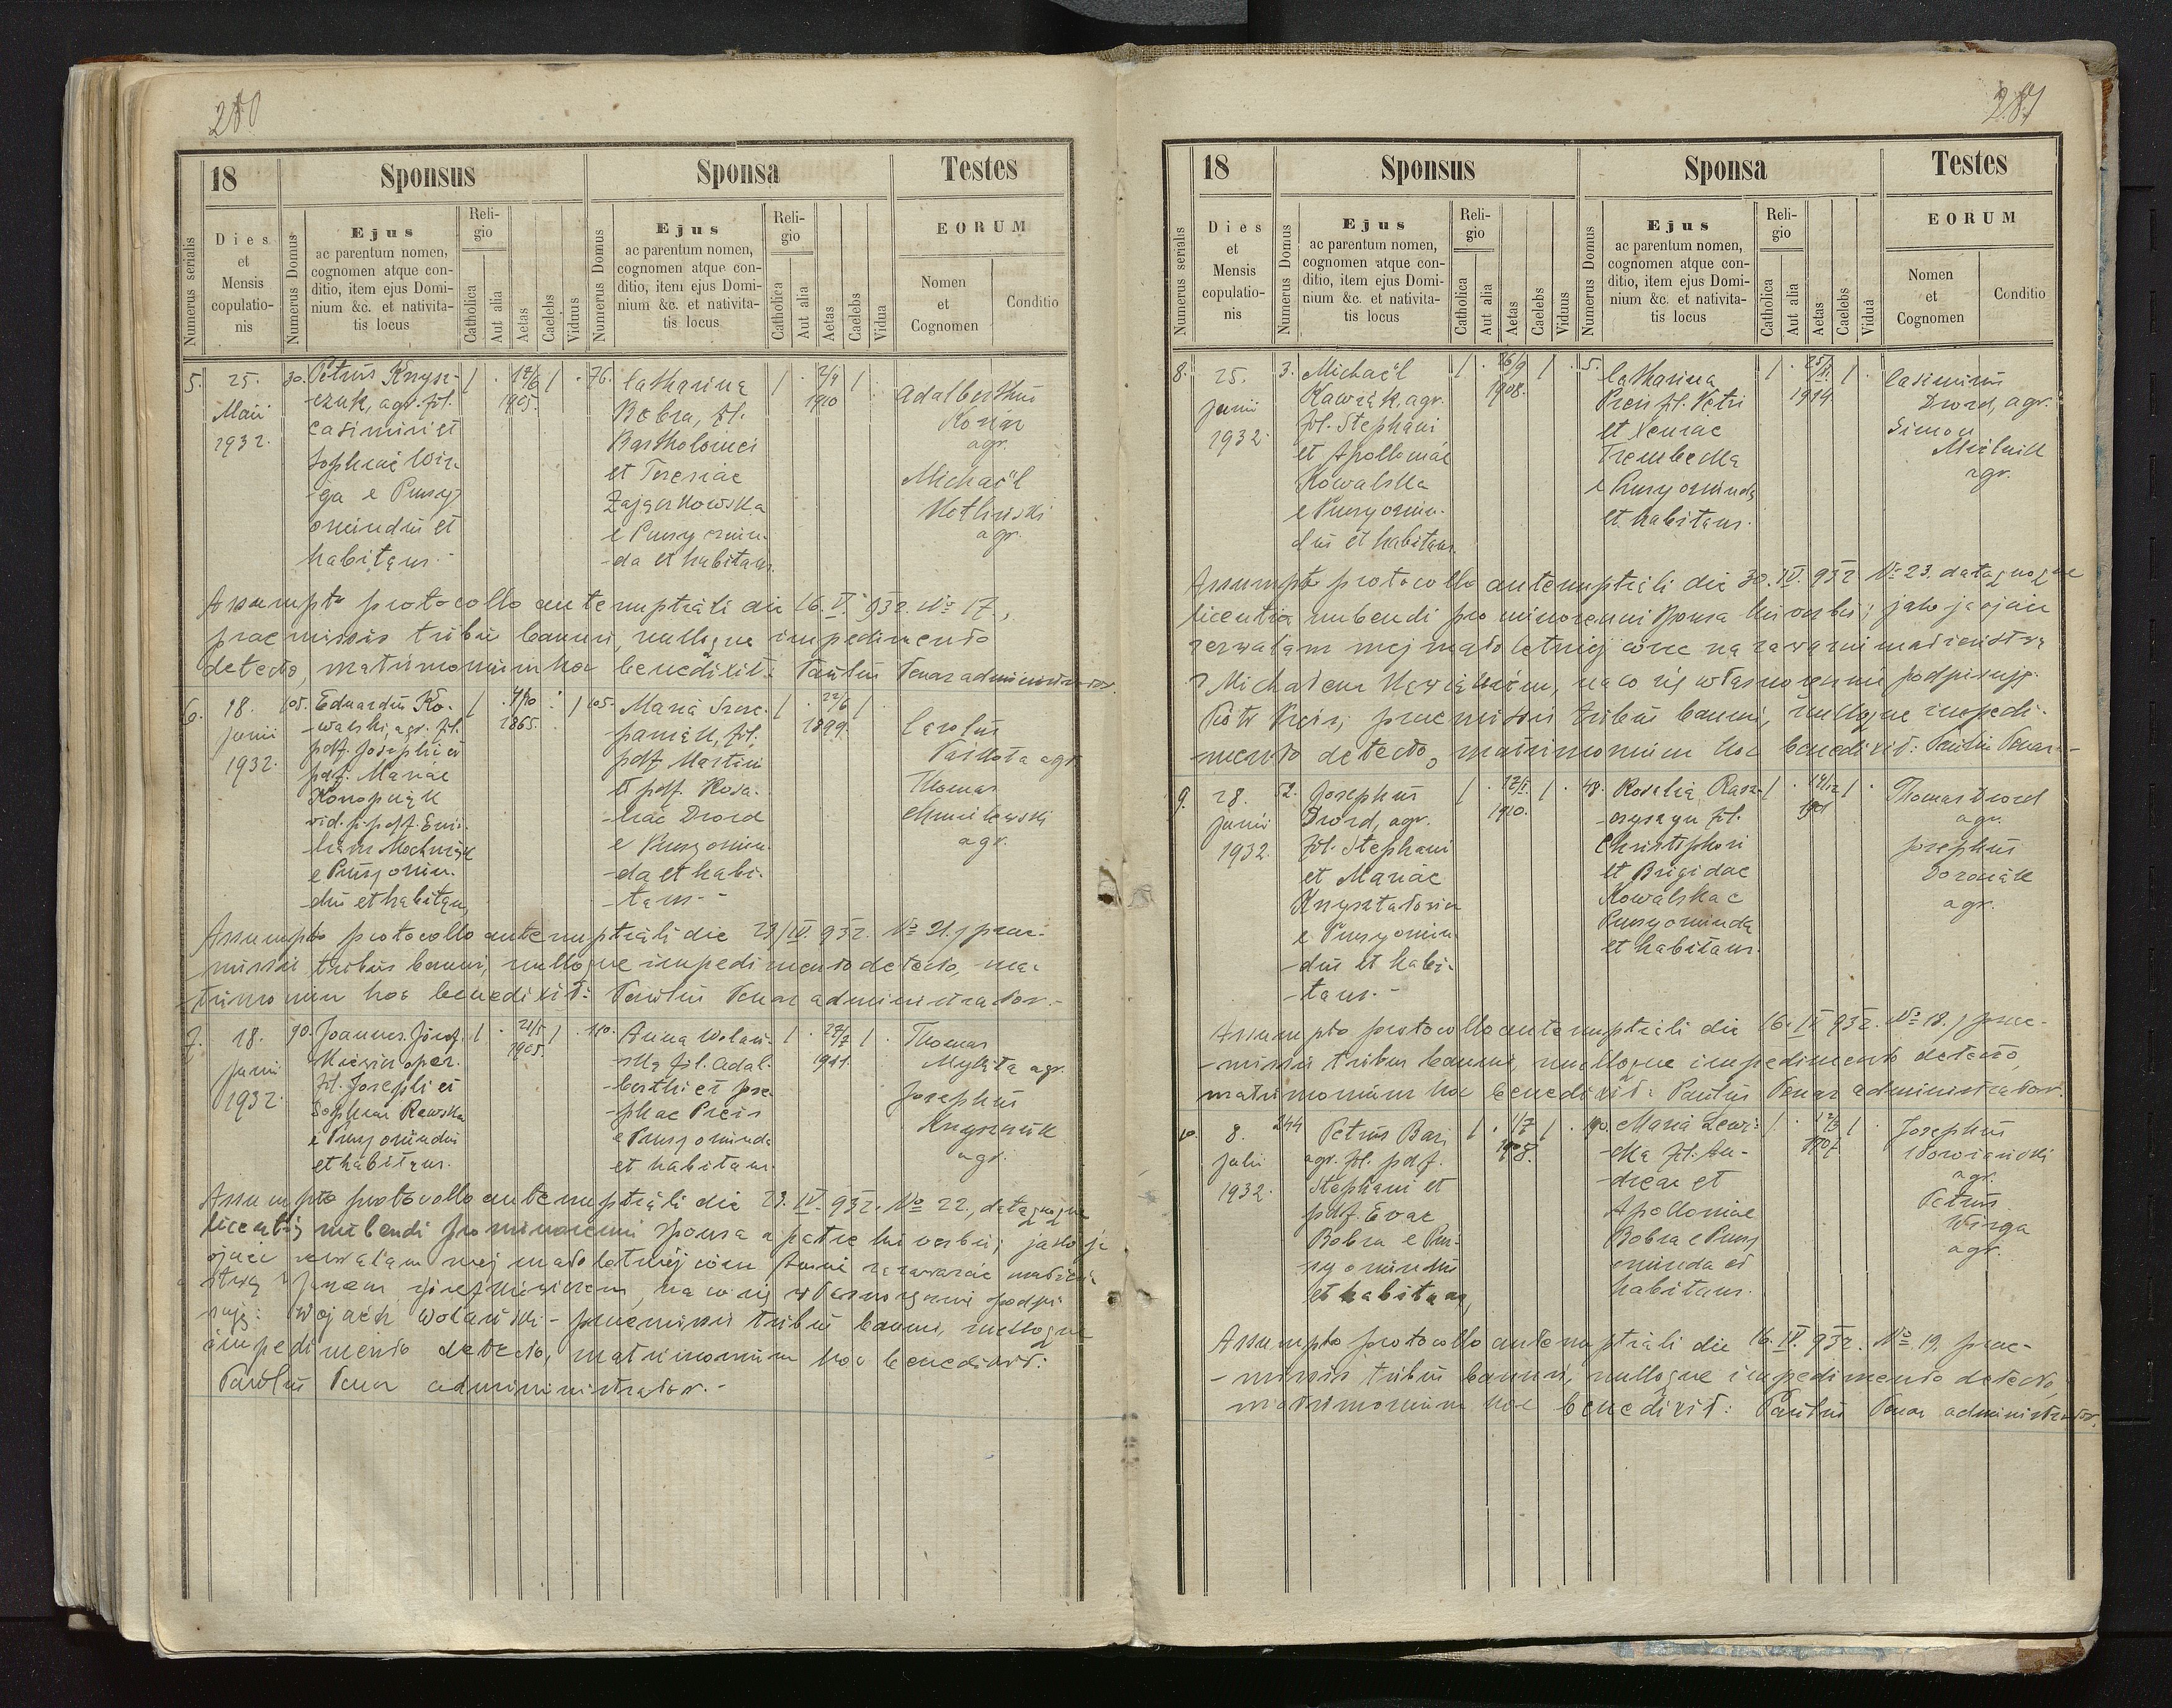 280
18
Sponsus
Sponsa
Testes
Numerus serialis
Dies
et
Mensis
copulatio-
nis
Numerus Domus
Ejus
ac parentum nomen,
cognomen atque con-
ditio, item ejus Domi-
nium &c. et nativita-
tis locus
Reli-
gio
Catholica
Aut alia
Aetas
Caelebs
Viduus
Numerus Domus
Ejus
ac parentum nomen,
cognomen atque con-
ditio, item ejus Domi-
nium &c. et nativita-
tis locus
Reli-
gio
Catholica
Aut alia
Aetas
Caelebs
Vidua
EORUM
Nomen
et
Cognomen
Conditio
5.
25.
Maii
1932.
30.
Petrus Knysz-
czuk, agr. fil.
Casimiri et
Sophiae Win-
-ga e
oriundus et
habitans.-
12/6
1905.
76.
Catharina
Bobra, fil.
Bartholomei
et Teresiae
Zającżkowska
e
-da et habitans.
2/9
1910
Adalberthus
agr.
Michaël
Kotliński
agr.
Assumpto protocollo antenuptiali die 16. V. 932. No 17,
praemissis tribus bannis, nulloque impedimento
detecto, matrimonium hoc benedixit: Paulus Tenar administrator.
6.
18.
Junii
1932.
105.
Eduardus Ko-
-walski, agr. fil.
pdf. Josephi et
pdf. Mariae
Konopniak
vid. p. pdf. Emi-
-dus et habitans
4/10
1865.
105.
Maria Szcze-
paniak, fil.
pdf. Martini
et pdf. Rosa-
-liae Drozd
e
-da et habi-
-tans.-
22/6
1899.
Carolus
agr.
Thomas
Chmielewski
agr.
Assumpto protocollo antenuptiali die 23/IV. 932. No 21. prae-
missis tribus bannis, nulloque impedimento detecto, ma-
trimonium hoc benedixit: Paulus Tenar administrator.-
7.
18.
Junii
1932.
90.
Joannes Józef-
oper.
fil. Josephi et
Sophiae Rawska
e oriundus
et habitans.
1905.
110.
Anna Wolań-
-ska fil. Adal-
-berthi et Jose-
-phae Preis
e oriunda
et habitans.
27/7
1911.
Thomas
Mykita agr.
Josephus
agr.
Assumpto protocollo antenuptiali die 23. IV. 932. No 22., dataque
licentia nubendi pro minorenni sponsa a patre his verbis; jako ja
ojciec zezwalam mej małoletniej córce Annie zawarcie małżeń-
stwa z Janem na co się własnoręcznie podpi
suję: Wojciech Wolański - praemissis tribus bannis, nulloque
impedimento detecto, matrimonium hoc benedixit:
Paulus Tenar administrator.-
281
18
Sponsus
Sponsa
Testes
Numerus serialis
Dies
et
Mensis
copulatio-
nis
Numerus Domus
Ejus
ac parentum nomen,
cognomen atque con-
ditio, item ejus Domi-
nium &c. et nativita-
tis locus
Reli-
gio
Catholica
Aut alia
Aetas
Caelebs
Viduus
Numerus Domus
Ejus
ac parentum nomen,
cognomen atque con-
ditio, item ejus Domi-
nium &c. et nativita-
tis locus
Reli-
gio
Catholica
Aut alia
Aetas
Caelebs
Vidua
EORUM
Nomen
et
Cognomen
Conditio
8.
25.
Junii
1932.
3.
Michaël
agr.
fil. Stephani
et Apolloniae
Kowalska
e oriun-
dus et habitans.
1908.
5.
Catharina
Preis fil. Petri
et Xeniae
Trembecka
e oriunda
et habitans.
1914.
Casimirus
Drozd, agr.
Simon
Mielnik
agr.
Assumpto protocollo antenuptiali die 30. IV. 932 No 23. dataque
licentia nubendi pro minorenni sponsa his verbis; jako ja ojciec
zezwalam mej małoletniej córce na zawarcie małżeństwa
z Michałem na co się własnoręcznie podpisuję.
Piotr Preis; praemissis tribus bannis, nulloque impedi-
mento detecto, matrimonium hoc benedixit: Paulus Tenar-
9.
28.
Junii
1932.
2.
Josephus
Drozd, agr.
fil. Stephani
et Mariae
e oriun-
-dus et habi-
-tans.-
1910.
48.
Rosalia
fil.
Christophori
et Brigidae
Kowalska e
oriunda
et habitans.
14/12
Thomas Drozd
agr.
Josephus
Doroniak
agr.
Assumpto protocollo antenuptiali die 16. IV. 932. No 18., prae-
-missis tribus bannis, nulloque impedimento detecto,
matrimonium hoc benedixit: Paulus Tenar administrator.
10.
8.
Julii
1932.
244
Petrus
agr. fil. pdf.
Stephani et
pdf. Evae
Bobra e
oriundus
et habitans,
1/7
190.
Maria Lewi-
-cka fil. An-
-dreae et
Apolloniae
Bobra e
oriunda et
habitans.
12/3
1907.
Josephus
agr.
Petrus
Winga
agr.
Assumpto protocollo antenuptiali die 16. IV. 932. No 19. prae-
-missis tribus bannis, nulloque impedimento detecto,
matrimonium hoc benedixit: Paulus Tenar administrator.